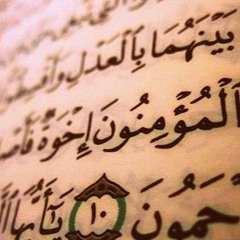 بَيْنَهُمَا بِٱلْعَدْلِ وَأَقْسِطُو
ٱلْمُؤْمِنُونَ إِخْوَةٌ فَأَصْ
حَمُونَ ١٠ يَٰٓأَيُّهَا ٱ